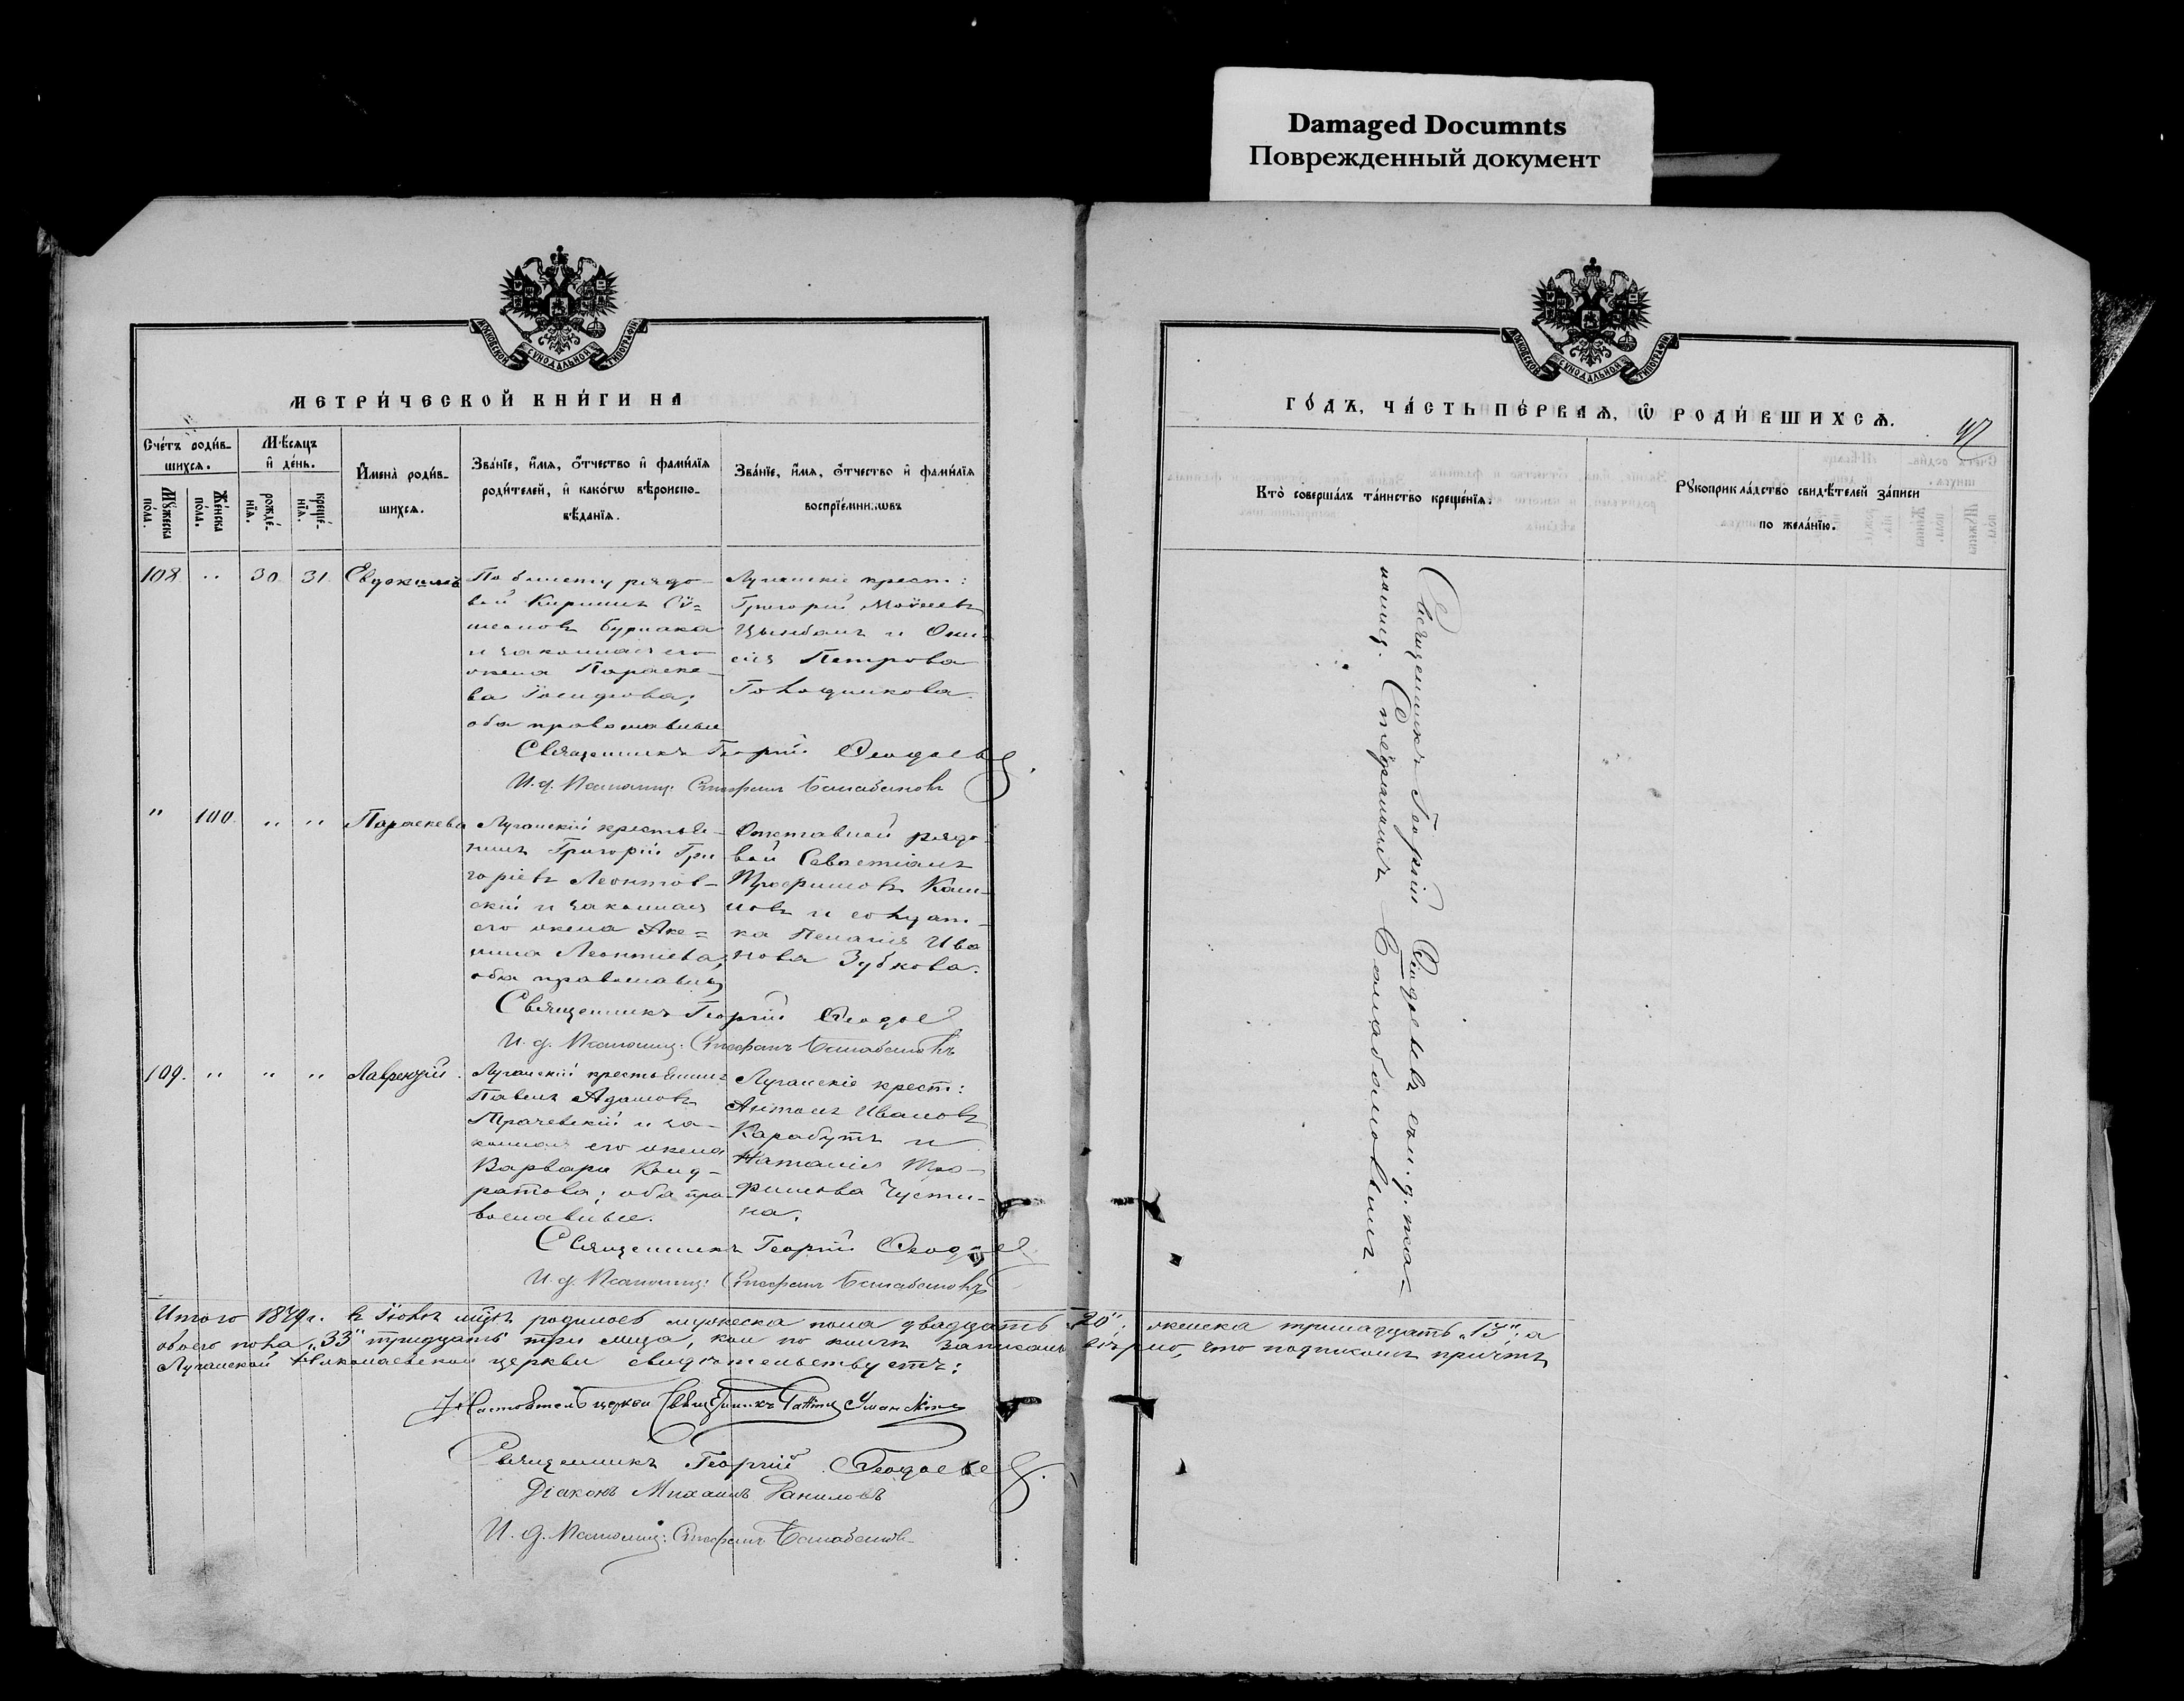 Damaged Documnts
Поврежденный документ
МОСКОВСКОЙ СѴНОДАЛЬНОЙ ТИПОГРАФІИ
МЕТРИ́ЧЕСКОЙ КНИ́ГИ НА
Сче́тъ роди́в-
шихсѧ.
Мꙋ́жеска
по́ла.
Же́нска
по́ла.
Мѣ́сѧцъ
и҆ де́нь.
рожде́-
нїѧ.
креще́-
нїѧ.
И҆мена̀ роди́в-
шихсѧ.
Зва́нїе, и҆́мѧ, ѻ҆́тчество и҆ фами́лїѧ
роди́телей, и҆ како́гѡ вѣроиспо-
вѣ́данїѧ.
Зва́нїе, и҆́мѧ, ѻ҆́тчество и҆ фами́лїѧ
воспрїе́мникѡвъ
108. " 30. 31. Евдокимъ
По билету рядо-
вой Кириллъ Сѵ-
меоновъ Бурлака
и законная его
жена Параске-
ва Іосифова;
оба православные
Луганскіе крест:
Григорій Моѵсеевъ
Цымбалъ и Окси-
нія Петрова
Голощапова.
Священникъ Георгій Ѳеодосьевъ.
И. д. Псаломщ: Стефанъ Балабановъ
" 100. " " Параскева
Луганскій крестья-
нинъ Григорій Гри
горіевъ Леонтов-
скій и законная
его жена Аке-
лина Леонтіева,
оба православны
Отставной рядо-
вой Севастіанъ
Трофимовъ Кли-
мовъ и солдат-
ка Пелагія Ива
нова Зубкова.
Священникъ Георгій Ѳеодос
И. д. Псаломщ: Стефанъ Балабановъ
109. " " " Лаврентій.
Луганскій крестьянинъ
Павелъ Адамовъ
Трачевскій и за-
конная его жена
Варвара Конд-
ратова; оба пра-
вославные.
Луганскіе крест:
Антонъ Ивановъ
Карабутъ и
Наталія Тро-
фимова Чусти-
на.
Священникъ Георгій Ѳеодос
И. д. Псаломщ: Стефанъ Балабановъ
Итого 1879 г. в Іюлѣ м-цѣ родилось мужеска пола двадцать „20", женска тринадцать „13", а
обоего пола „33" тридцать три лица, кои по книгѣ записаны вѣрно, что подписомъ причтъ
Луганской Николаевской церкви свидѣтельствуетъ:
Настоятель церкви Священникъ
Священникъ Георгій Ѳеодосьевъ.
Діаконъ Михаилъ Даниловъ
И. д. Псаломщ: Стефанъ Балабановъ
МОСКОВСКОЙ СѴНОДАЛЬНОЙ ТИПОГРАФІИ
ГО́ДЪ, ЧА́СТЬ ПЕ́РВАѦ, Ѡ҆ РОДИ́ВШИХСѦ.
Кто̀ соверша́лъ та́инство креще́нїѧ.
Рꙋкоприкла́дство свидѣ́телей за́писи
по жела́нїю.
Священникъ Георгій Ѳеодосьевъ съ и. д. пса-
ломщ. Стефаномъ Балабановымъ